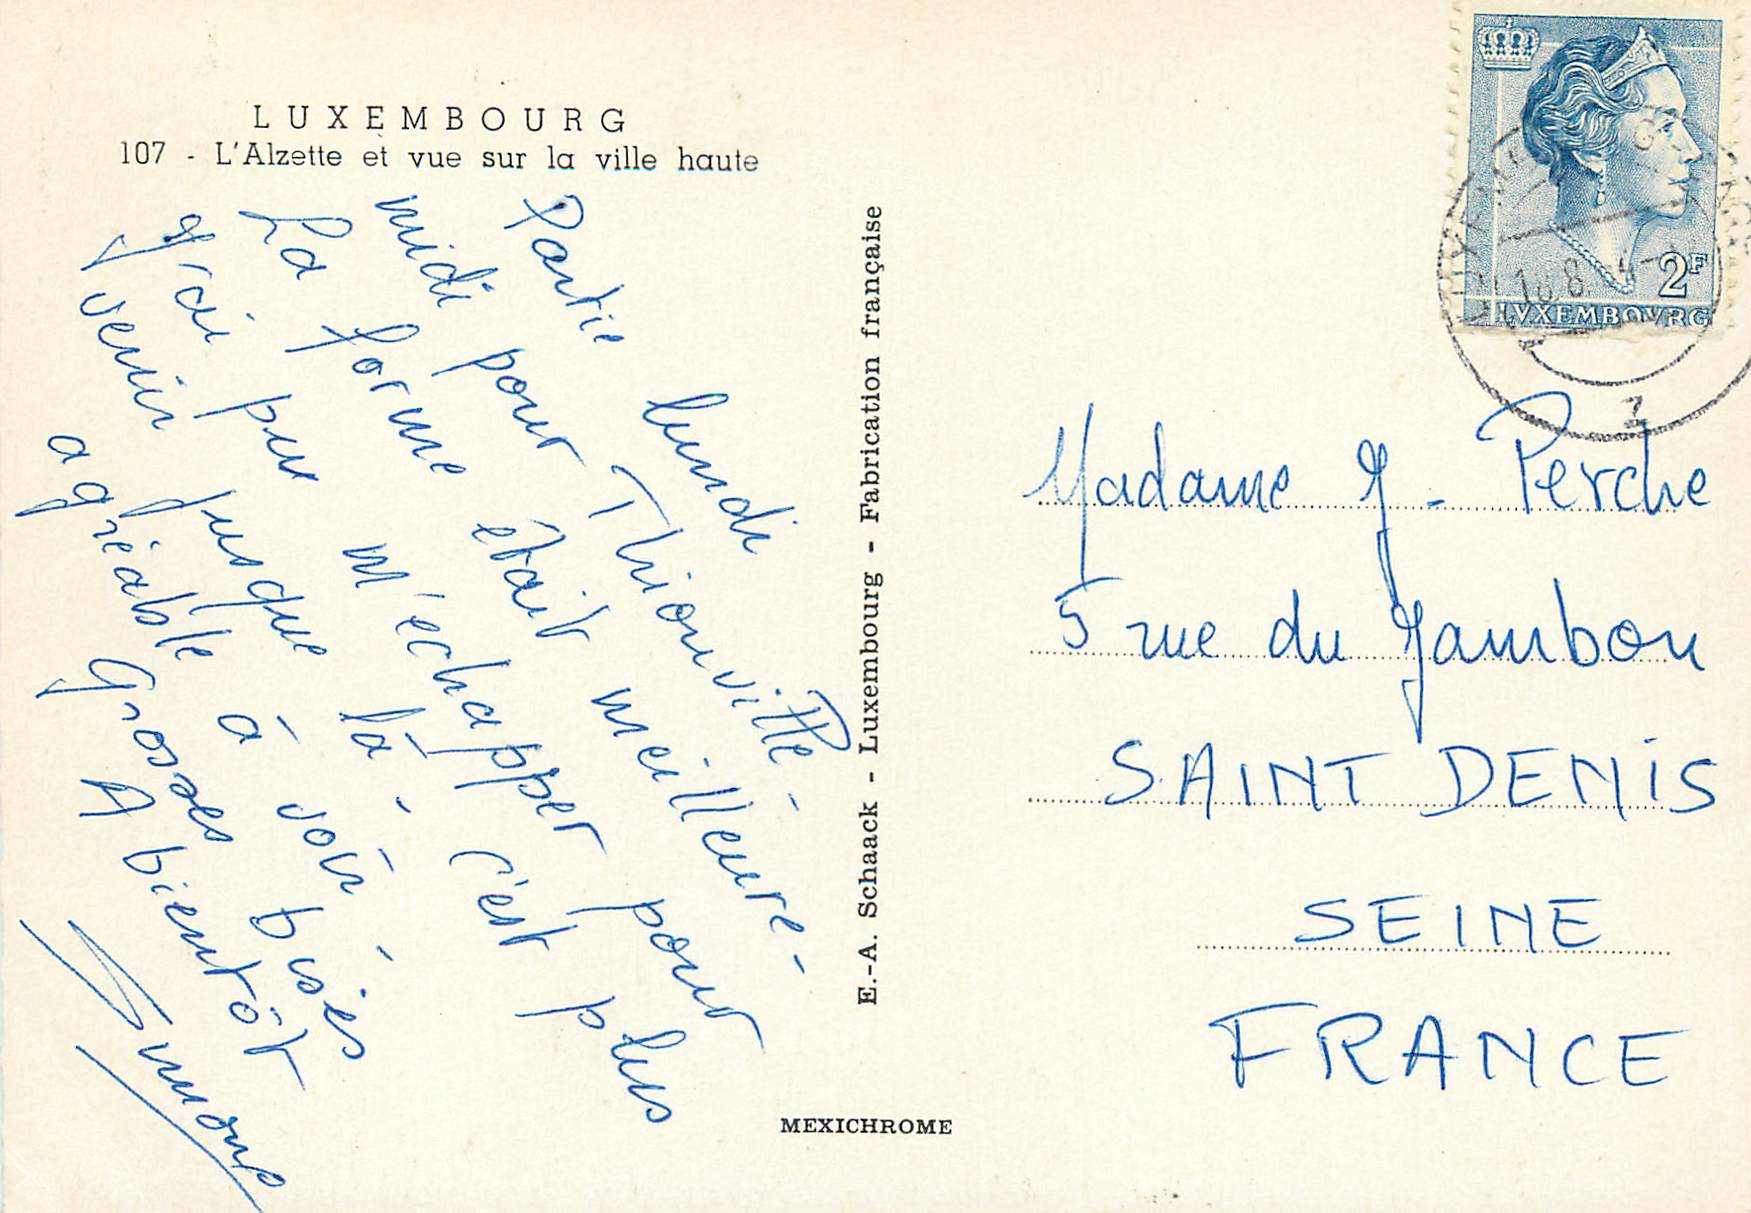 LUXEMBOURG
107 - L'Alzette et vue sur la ville haute
Partie lundi
midi pour Thionville -
La forme était meilleure -
J'ai pu m'echapper pour
venir jusque là - c'est plus
agréable à voir -
Grosses bises
A bientôt
Simone
E.-A. Schaack - Luxembourg - Fabrication française
MEXICHROME
2F
LVXEMBOVRG
Madame J. Perche
5 rue du Jambon
SAINT DENIS
SEINE
FRANCE